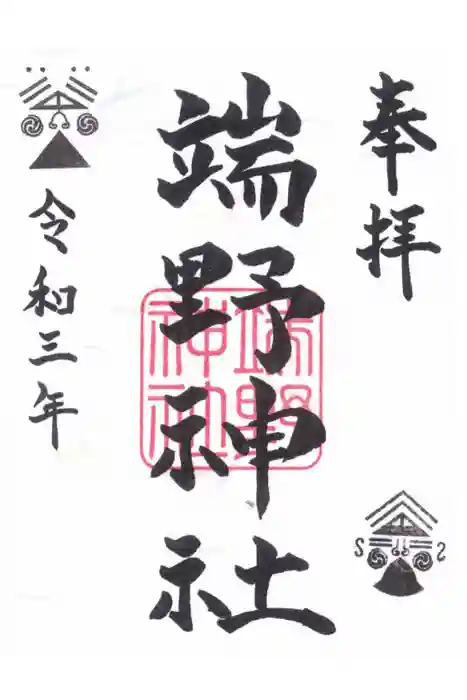 奉拝
端野神社
端野神社
令和三年